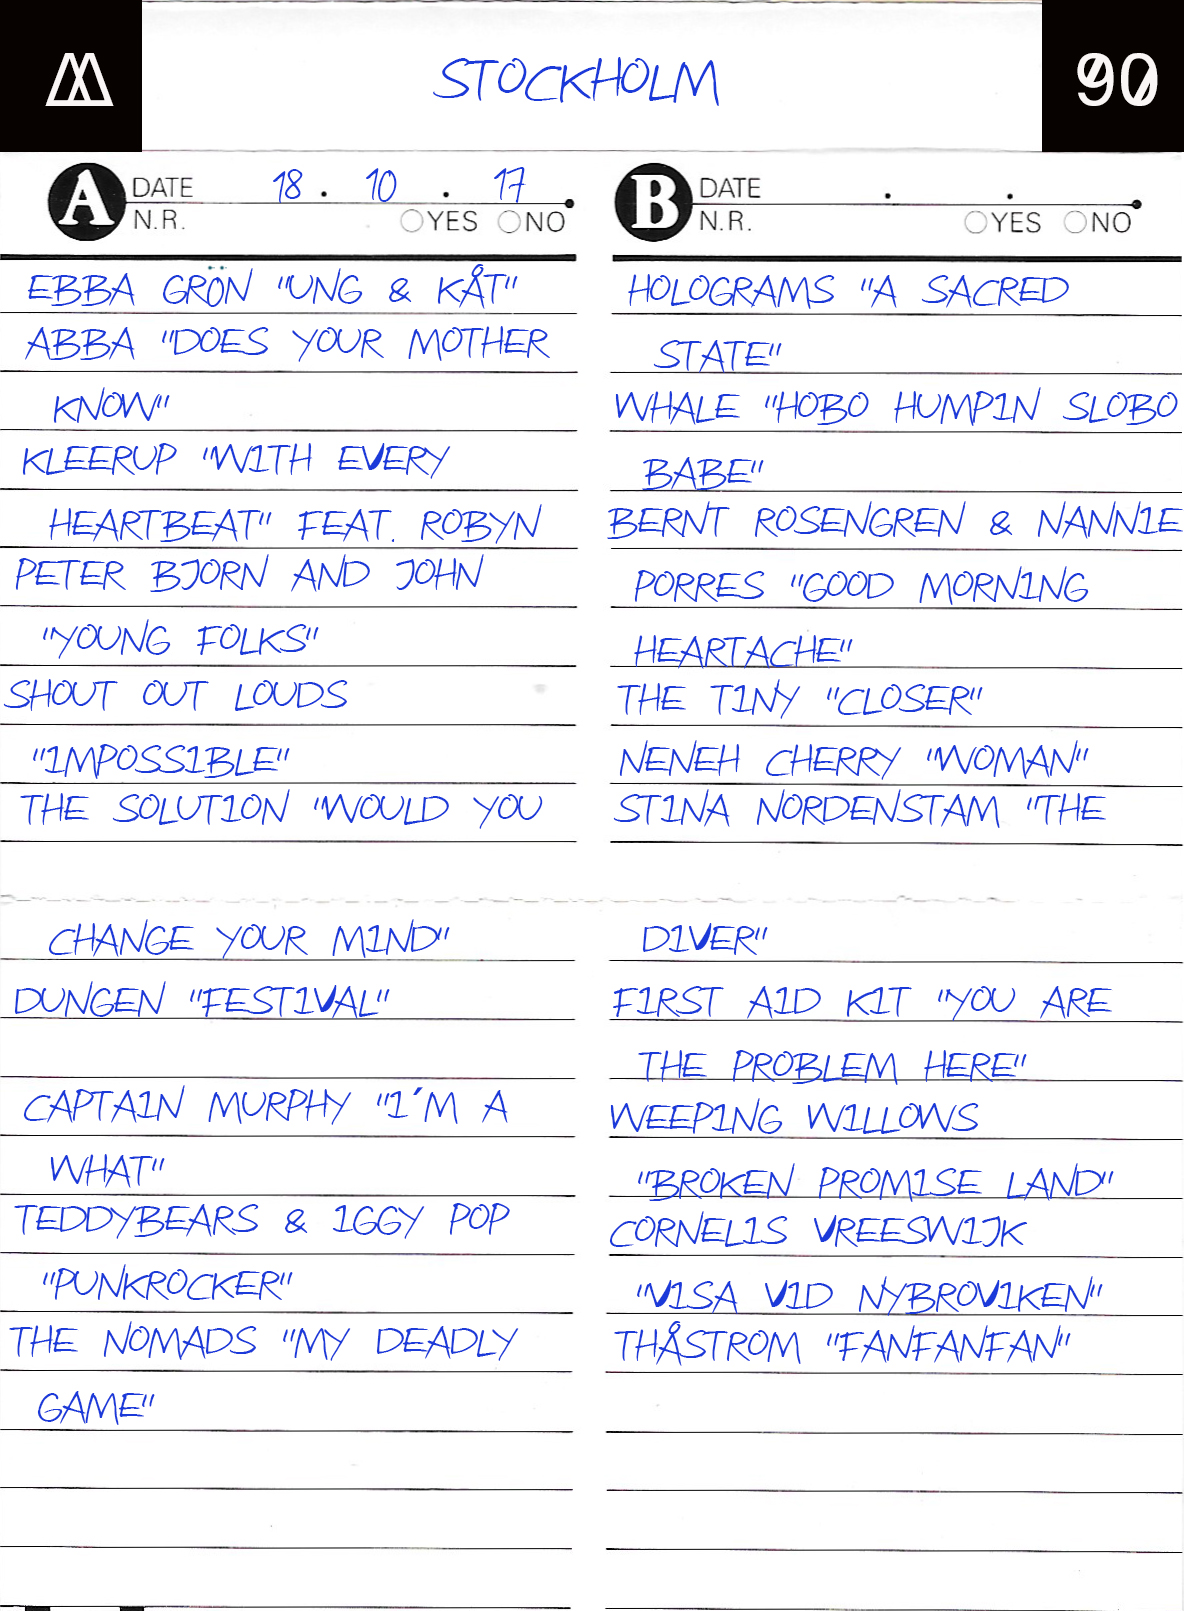 STOCKHOLM
90
A DATE 18 . 10 . 17
N.R. YES NO
EBBA GRÖN "UNG & KÅT"
ABBA "DOES YOUR MOTHER
KNOW"
KLEERUP "WITH EVERY
HEARTBEAT" FEAT. ROBYN
PETER BJORN AND JOHN
"YOUNG FOLKS"
SHOUT OUT LOUDS
"IMPOSSIBLE"
THE SOLUTION "WOULD YOU
CHANGE YOUR MIND"
DUNGEN "FESTIVAL"
CAPTAIN MURPHY "I´M A
WHAT"
TEDDYBEARS & IGGY POP
"PUNKROCKER"
THE NOMADS "MY DEADLY
GAME"
B DATE . .
N.R. YES NO
HOLOGRAMS "A SACRED
STATE"
WHALE "HOBO HUMPIN SLOBO
BABE"
BERNT ROSENGREN & NANNIE
PORRES "GOOD MORNING
HEARTACHE"
THE TINY "CLOSER"
NENEH CHERRY "WOMAN"
STINA NORDENSTAM "THE
DIVER"
FIRST AID KIT "YOU ARE
THE PROBLEM HERE"
WEEPING WILLOWS
"BROKEN PROMISE LAND"
CORNELIS VREESWIJK
"VISA VID NYBROVIKEN"
THÅSTROM "FANFANFAN"